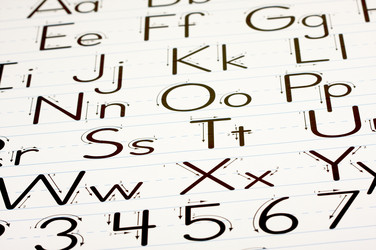 Aa
Ee Ff Gg
i Jj Kk Ll
Nn Oo Pp
r Ss Tt U
Ww Xx Yy
3 4 5 6 7